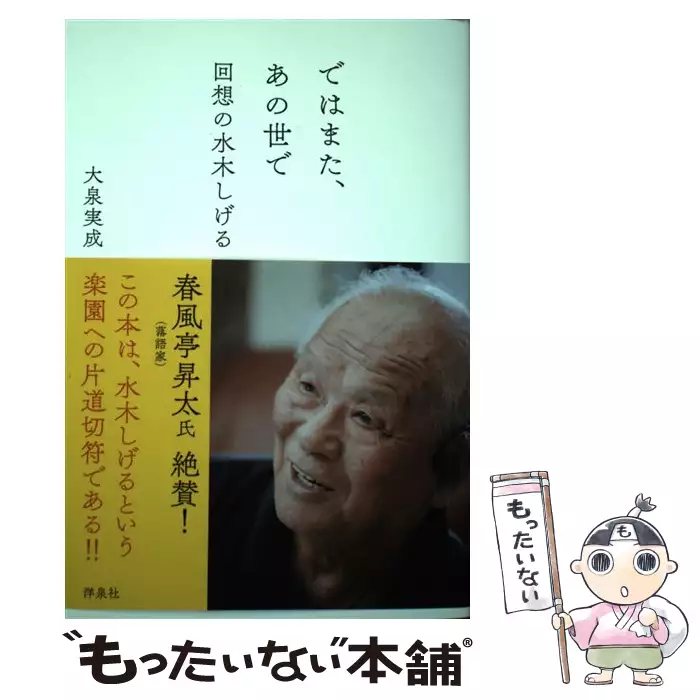 ではまた、
あの世で
回想の水木しげる
大泉実成
春風亭昇太氏 絶賛!
(落語家)
この本は、水木しげるという
楽園への片道切符である!!
洋泉社
も
もったいない
“もったいない本舗®